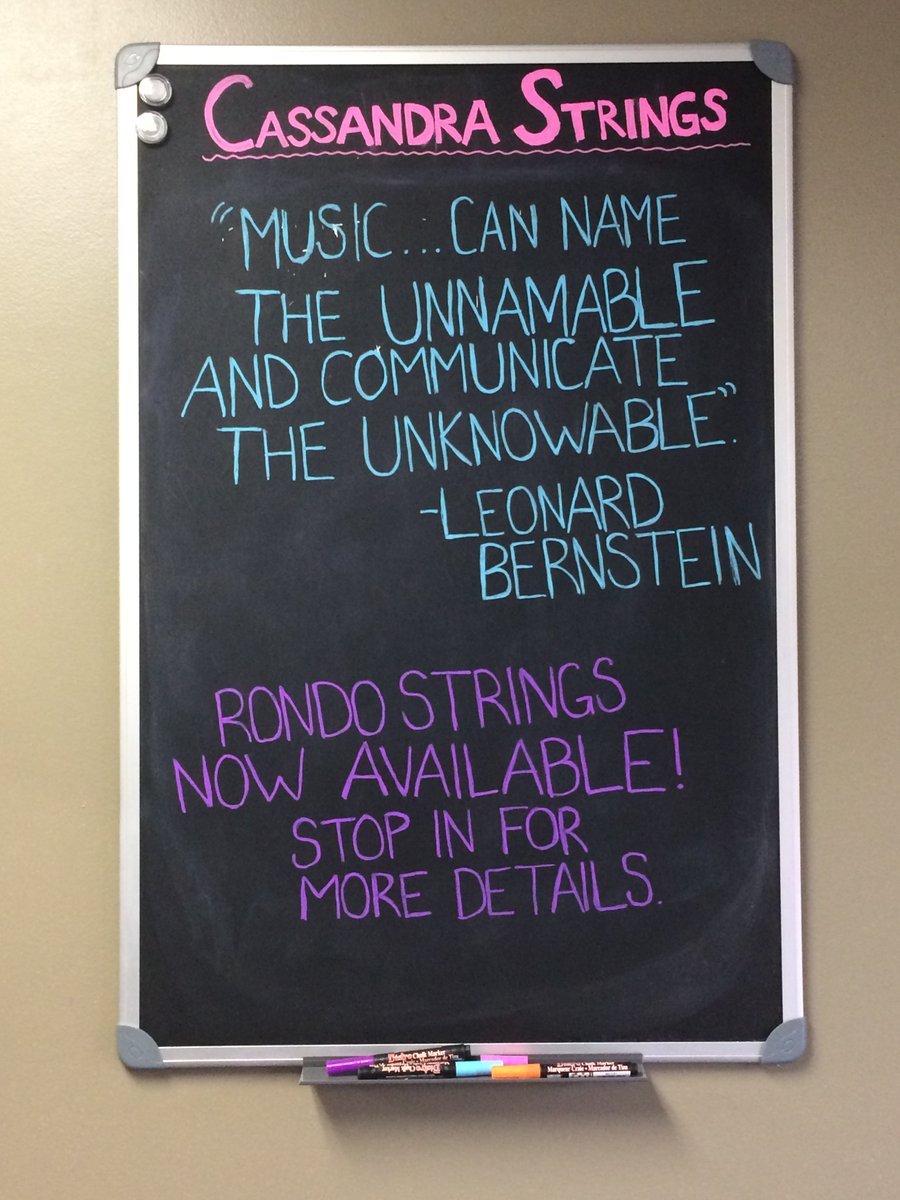 CASSANDRA STRINGS
"MUSIC... CAN NAME
THE UNNAMABLE
AND COMMUNICATE
THE UNKNOWABLE".
-LEONARD
BERNSTEIN
RONDO STRINGS
NOW AVAILABLE!
STOP IN FOR
MORE DETAILS.
Chalk Marker
Marcador de Tiza
Marqueur Craie • Marcador de Tiza